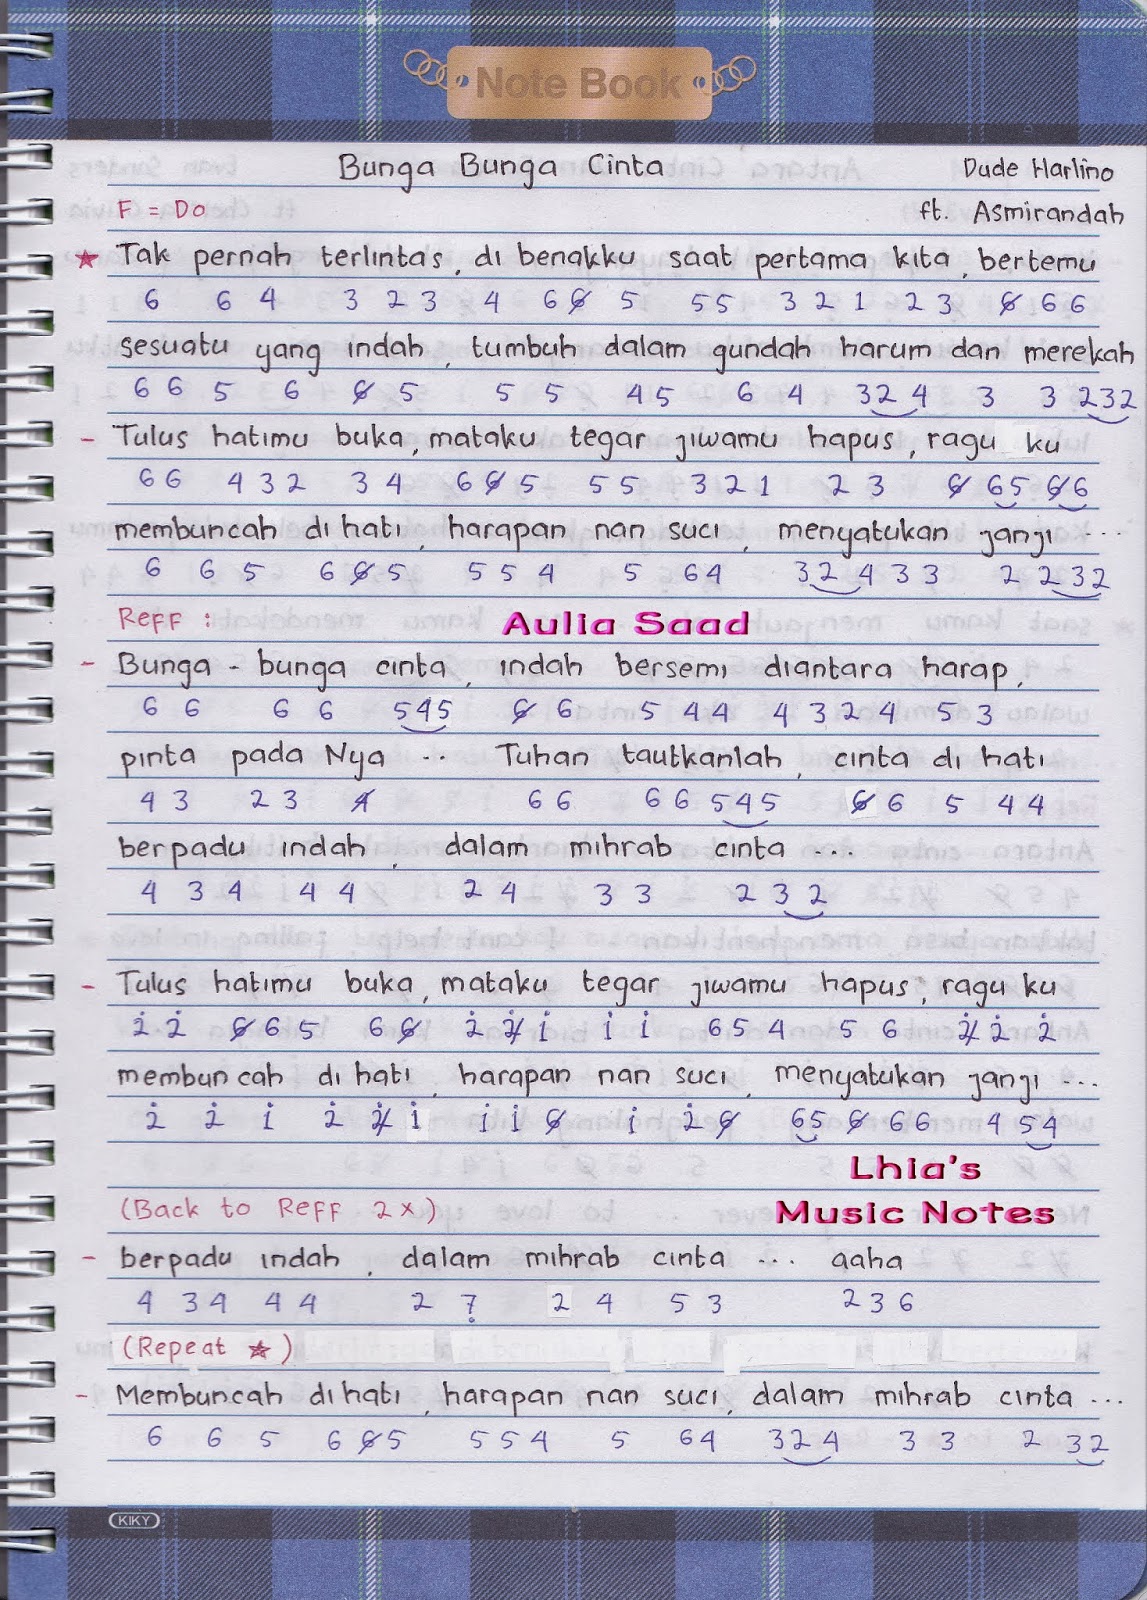 Note Book
Bunga Bunga Cinta Dude Harlino
F = Do ft. Asmirandah
★ Tak pernah terlintas, di benakku saat pertama kita, bertemu
6 6 4 3 2 3 4 6 6̸ 5 5 5 3 2 1 2 3 6̸ 6 6
sesuatu yang indah, tumbuh dalam gundah harum dan merekah
6 6 5 6 6̸ 5 5 5 4 5 6 4 3 2 4 3 3 2 3 2
- Tulus hatimu buka, mataku tegar jiwamu hapus, ragu ku
6 6 4 3 2 3 4 6 6̸ 5 5 5 3 2 1 2 3 6̸ 6 5 6̸ 6
membuncah di hati, harapan nan suci, menyatukan janji ...
6 6 5 6 6̸ 5 5 5 4 5 6 4 3 2 4 3 3 2 2 3 2
Reff : Aulia Saad
- Bunga - bunga cinta, indah bersemi diantara harap,
6 6 6 6 5 4 5 6̸ 6 5 4 4 4 3 2 4 5 3
pinta pada Nya ... Tuhan tautkanlah, cinta di hati
4 3 2 3 4̸ 6 6 6 6 5 4 5 6̸ 6 5 4 4
berpadu indah, dalam mihrab cinta ...
4 3 4 4 4 2 4 3 3 2 3 2
- Tulus hatimu buka, mataku tegar jiwamu hapus, ragu ku
2̇ 2̇ 6̸ 6 5 6 6̸ 2̇ 2̸̇ 1̇ 1̇ 1̇ 6 5 4 5 6 2̸̇ 2̇ 2̇
membuncah di hati, harapan nan suci, menyatukan janji ...
2̇ 2̇ 1̇ 2̇ 2̸̇ 1̇ 1̇ 1̇ 6̸ 1̇ 2̇ 6̸ 6 5 6̸ 6 6 4 5 4
Lhia's
(Back to Reff 2x) Music Notes
- berpadu indah, dalam mihrab cinta ... aaha
4 3 4 4 4 2 7̣ 2 4 5 3 2 3 6
(Repeat ★)
- Membuncah di hati, harapan nan suci, dalam mihrab cinta ...
6 6 5 6 6̸ 5 5 5 4 5 6 4 3 2 4 3 3 2 3 2
KIKY